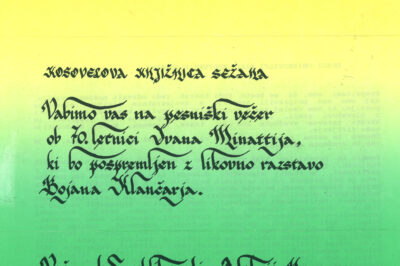 KOSOVELOVA KNJIŽNICA SEŽANA
Vabimo vas na pesniški večer
ob 70. letnici Ivana Minattija,
ki bo pospremljen z likovno razstavo
Bojana Klančarja.